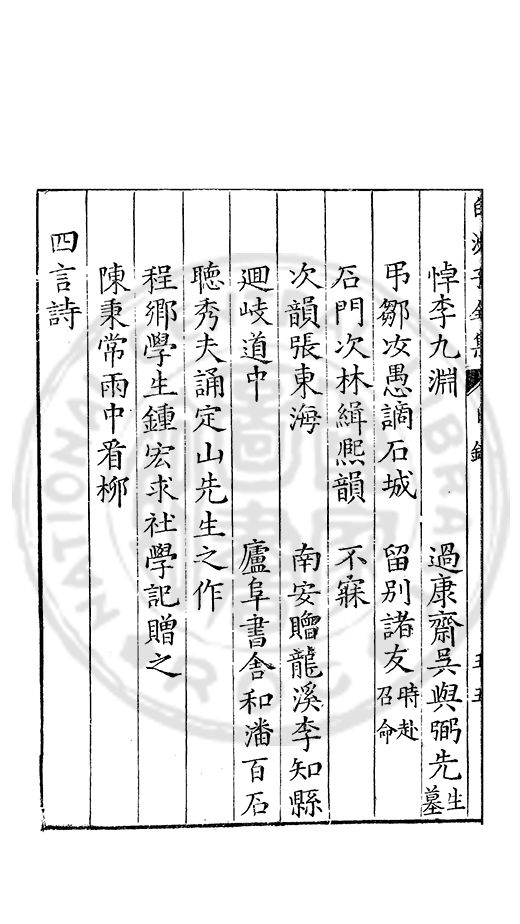 悼李九淵　過康齋吳與弼先生墓
弔鄒汝愚謫石城　留別諸友時赴召命
石門次林緝熙韻　不寐
次韻張東海　南安贈龍溪李知縣
迴岐道中　廬阜書舍和潘百石
聽秀夫誦定山先生之作
程鄉學生鍾宏求社學記贈之
陳秉常雨中看柳
四言詩